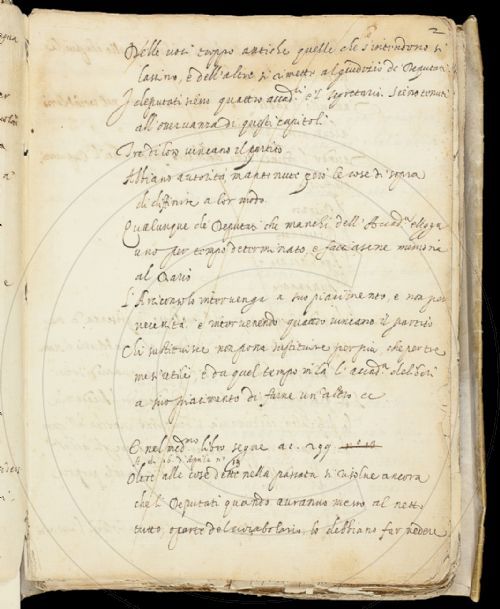 2
Delle voci troppo antiche quelle che s'intendono si
lascino, e dell'altre si rimette al giudizio de Deputati
I deputati sieno quattro accad.ci e il Segretario. Sieno tenuti
all'osservanza di questi capitoli.
Tre di loro vincano il partito.
Abbiano autorità mantenute però le cose di sopra
di diffinire a lor modo.
Qualunque de Deputati che manchi dell'Accad.a elegga
uno per tempo determinato, e facciasene memoria
al Diario
L'Arciconsolo intervenga a suo piacimento, e non per
necessità, e intervenendo quattro vincano il partito
Chi sustituisce non possa sustituire per più, che per tre
mesi utili, e da quel tempo in là l'accad.a deliberi
a suo piacimento di farne un'altro ec
E nel med.mo libro segue a c. 299
Oltre alle cose dette nella passata si risolve ancora
che i Deputati quando avranno messo al netto
tutto, o parte del vocabolario, lo debbiano far vedere